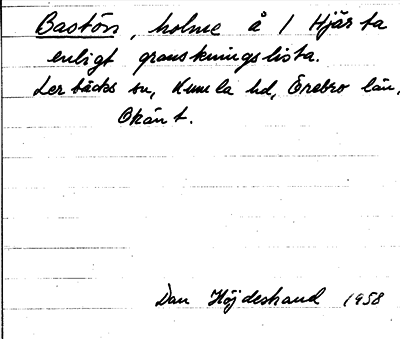 Bastön, holme å / Hjärta
enligt granskningslista.
Lerbäcks sn, Kumla hd, Örebro län.
Okänt.
Dan Höjdestrand 1958